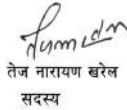 तेज नारायण खरेल
सदस्य